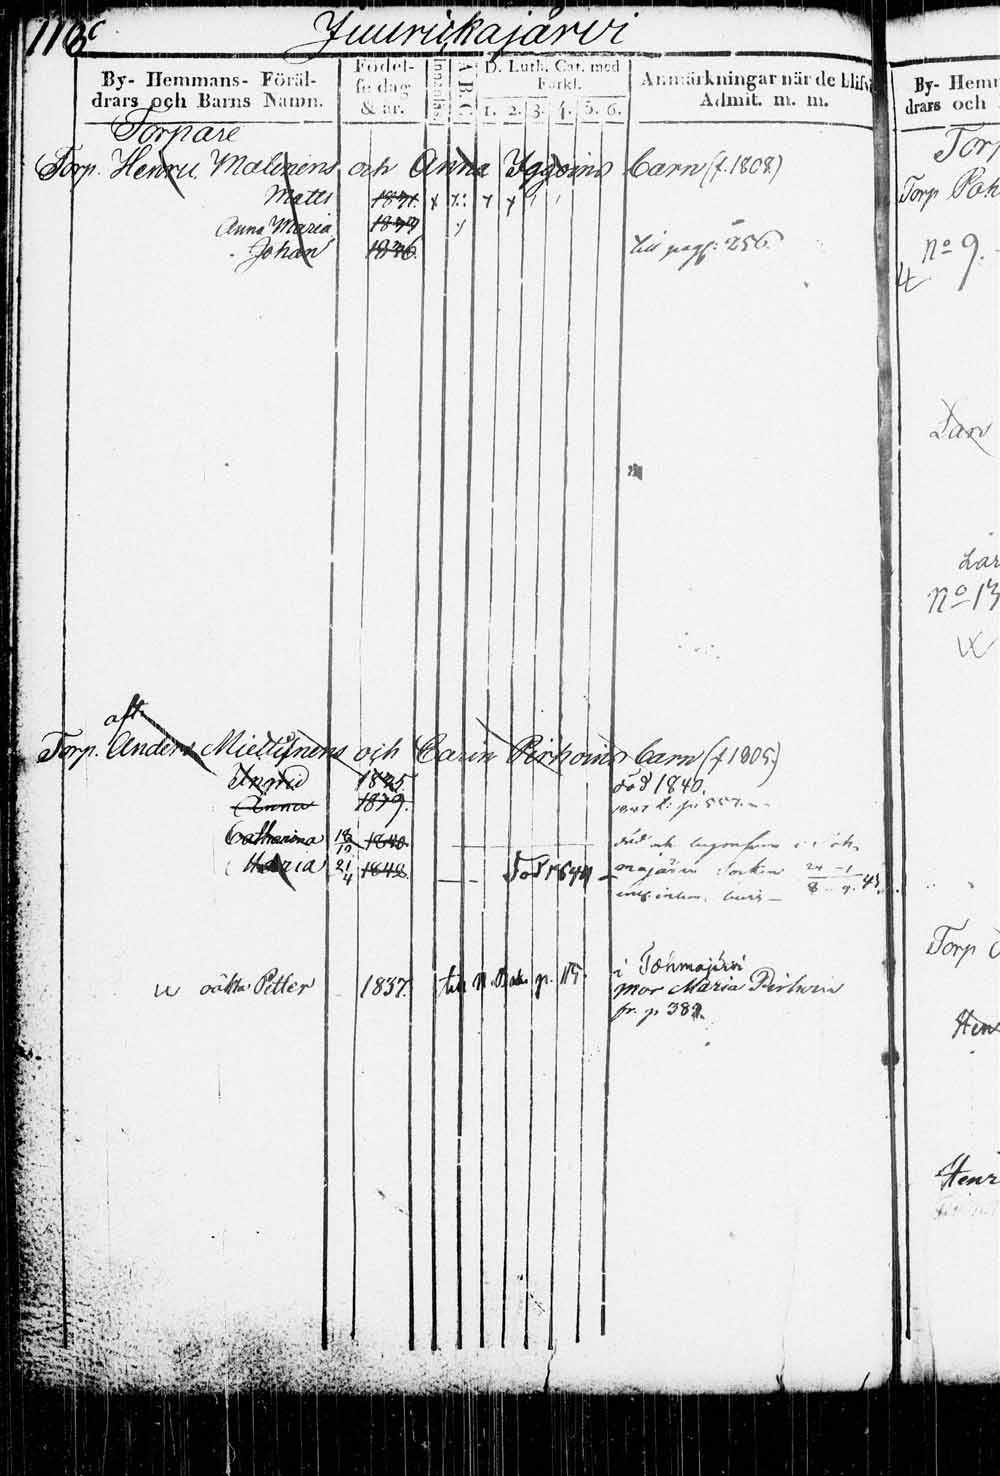 118c
Juurickajärvi
By- Hemmans- Föräl-
drars och Barns Namn.
Födel-
se dag
& år.
Innanläs.
A B C.
D. Luth. Cat. med
Förkl.
1. 2. 3. 4. 5. 6.
Anmärkningar när de blifvi
Admit. m. m.
Torpare
Torp. Henric Malinens och Anna Iggoins barn (f. 1808)
Matts 1831.
Anna Maria
Johan 1836.
till pag: 256.
aft:
Torp. Anders Miettinens och Carin Pirhoins barn (f 1805)
Ingrid 1835. död 1840.
Anna 1839.
Catharina 18/10 1840.
Maria 21/4 1842. Död 1844
majärvi
oäkta Petter 1837. till N. Bok. p. 115.
i Tohmajärvi
mor Maria Pirhoin
fr. p. 381.
By- Hem
drars och
Torp
Torp Pak
No 9.
Lars
Lar
No 13
Torp
Hen
Henr